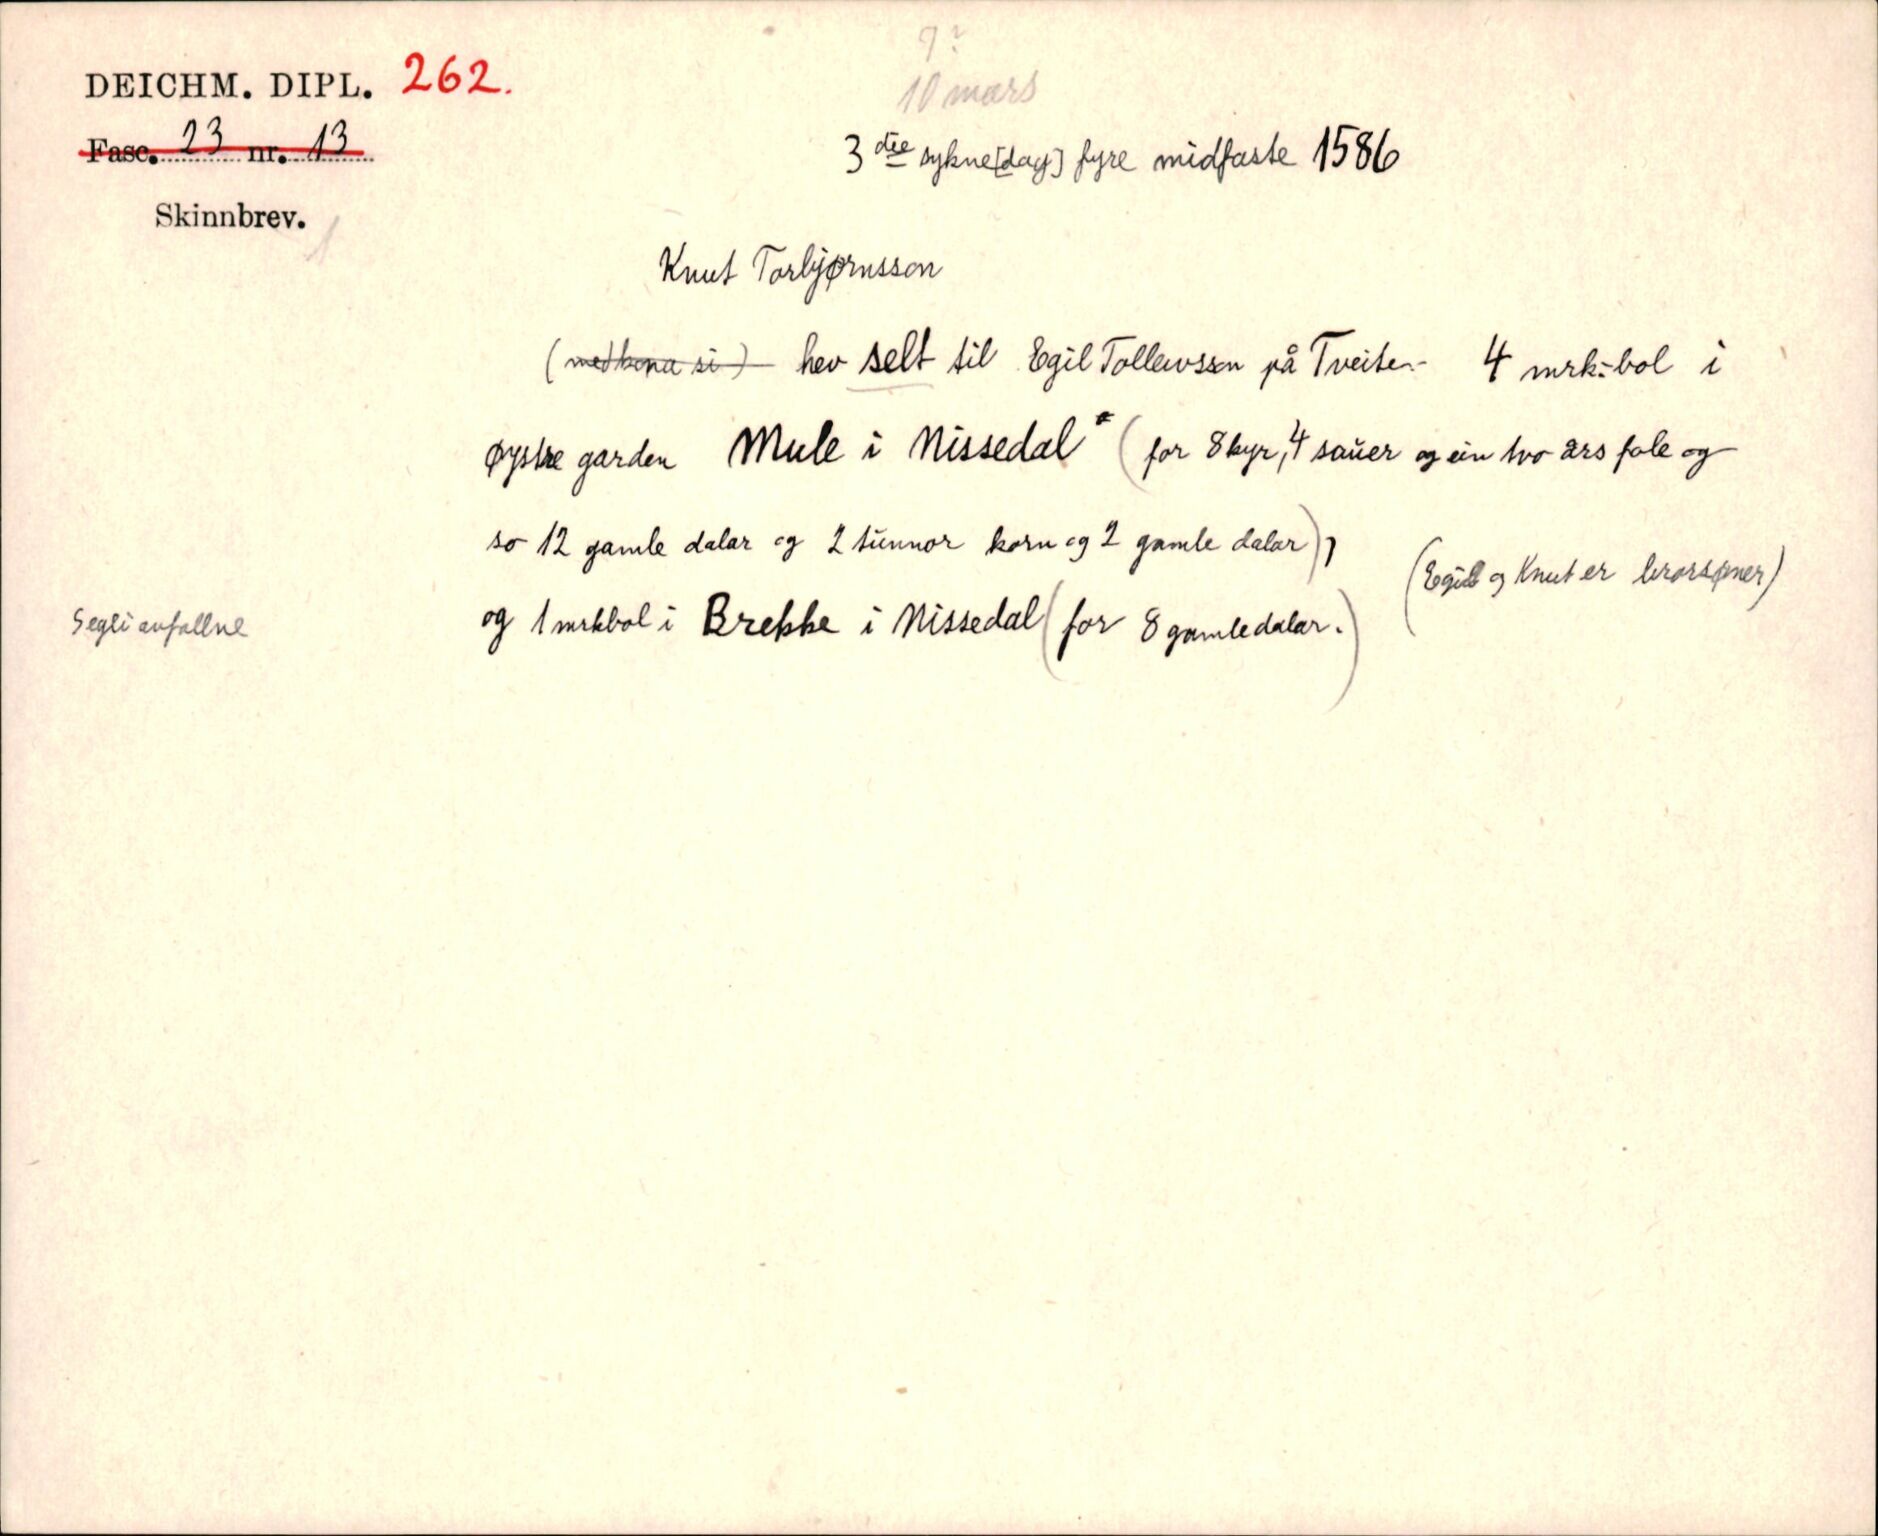 DEICHM. DIPL. 262.
Fasc. 23 nr. 13
Skinnbrev.
1
9?
10 mars
3die sykne[dag] fyre midfaste 1586
Knut Torbjørnsson
(med kona si) hev selt til Egil Tollevsson på Tveiten 4 mrk:bol i
øystre garden Mule i Nissedal (for 8 kyr, 4 sauer og ein two års fole og
so 12 gamle dalar og 2 tunnor korn og 2 gamle dalar),
(Egil og Knut er brorsøner)
og 1 mrkbol i Brekke i Nissedal (for 8 gamledalar.)
Segli avfallne